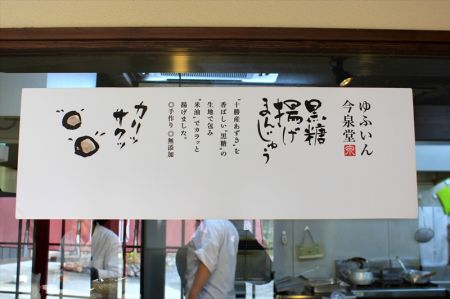 ゆふいん
今泉堂
黒糖
揚げ
まんじゅう
"十勝産あずき"を
香ばしい"黒糖"の
生地で包み
"米油"でカラッと
揚げました。
◎手作り ◎無添加
カリッ
サクッ